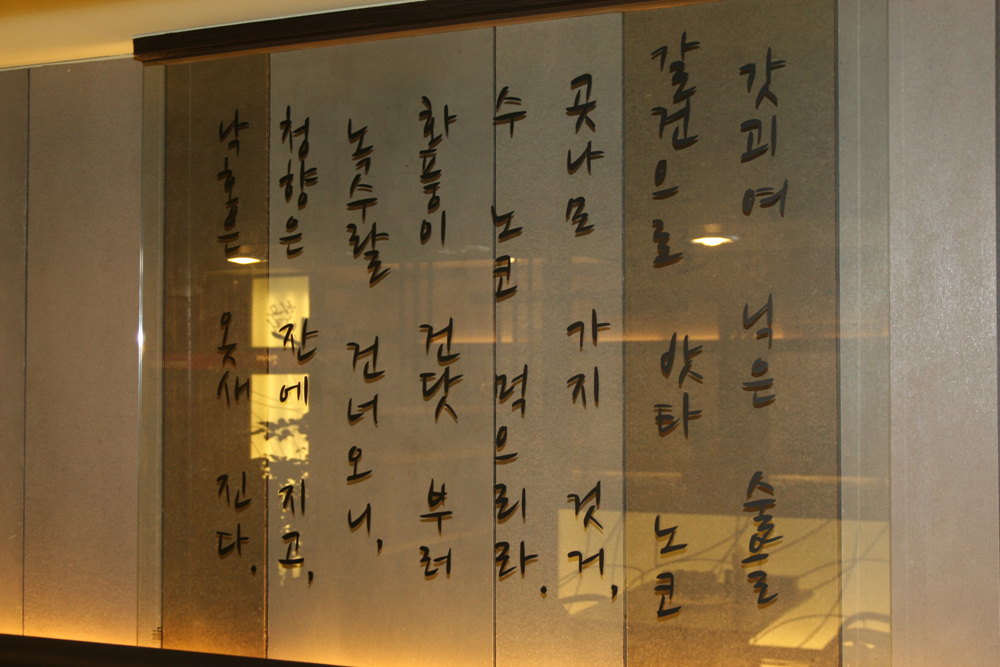 갓괴여 닉은 술으로
갈건으로 밧타 노코
곳나모 가지 것거,
수 노코 먹으리라.
화풍이 건닷 부러
녹수랄 건너오니,
청향은 잔에 지고,
낙홍은 옷새 진다.